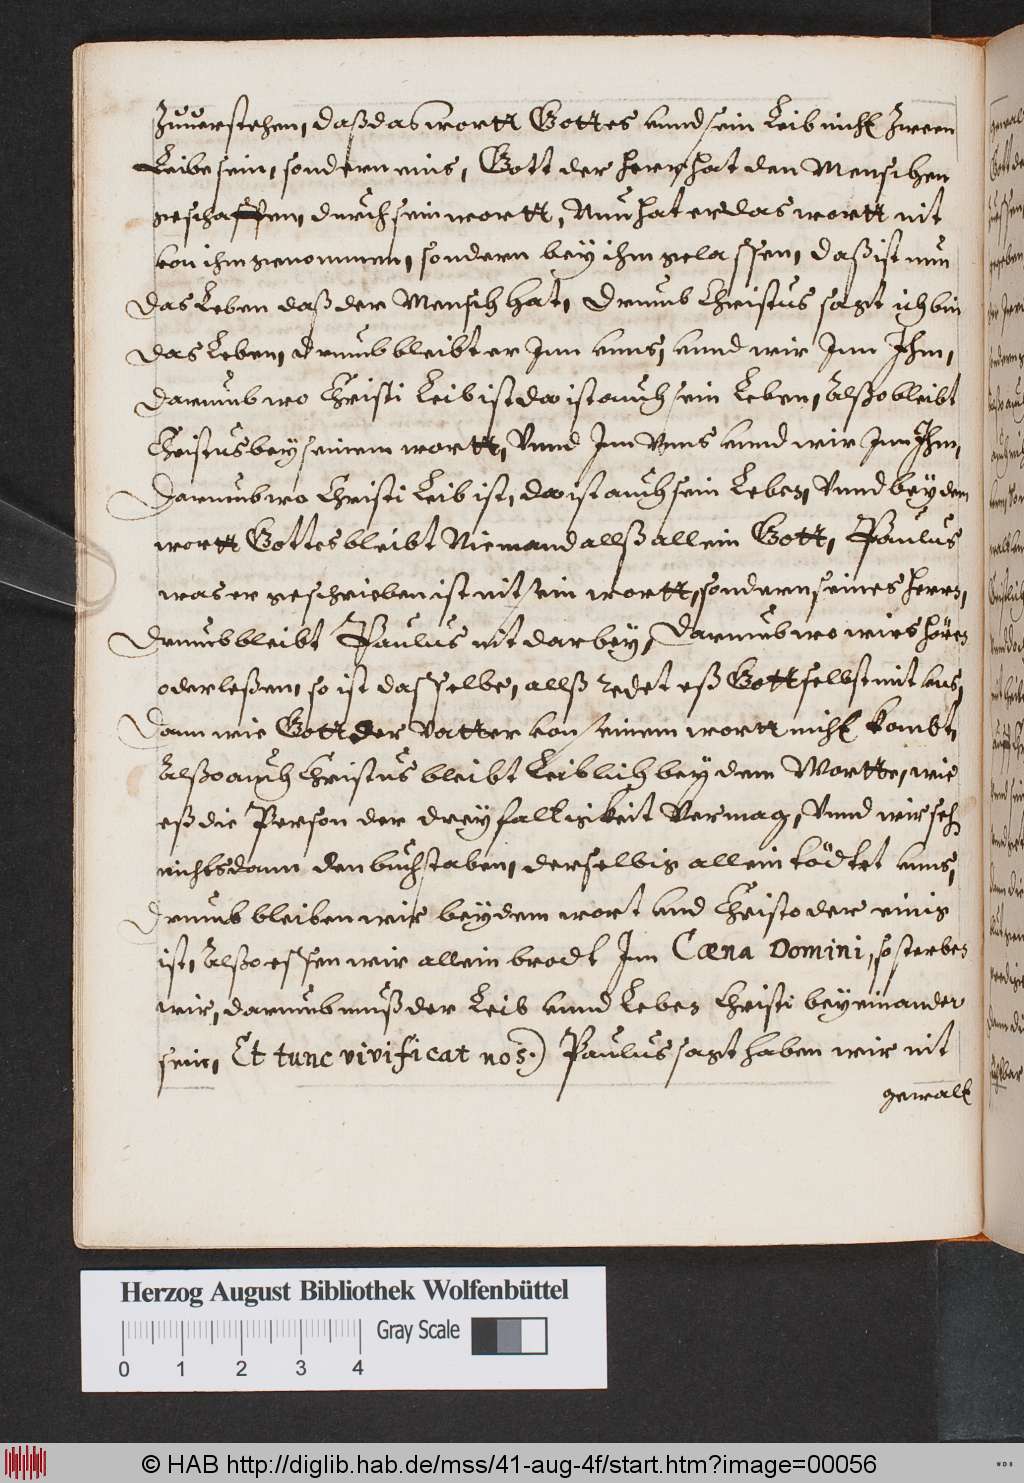 Zuuerstehen, daß das wortt Gottes vnnd sein Leib nicht Zween
Leibe sein, sondern eins, Gott der Herr hat den Menschen
geschaffen, durch sein wortt, Nun hat er das wortt nit
von ihm genommen, sondern bey ihm gelassen, daß ist nun
das Leben daß der Mensch hat, Drumb Christus sagt ich bin
das Leben, drumb bleibt er Inn vnns, vnnd wir Inn Ihm,
Darumb wo Christi Leib ist do ist auch sein Leben, Alßo bleibt
Christus bey seinem wortt, Vnnd Inn Vnns vnnd wir Inn Ihm,
Darumb wo Christi Leib ist, do ist auch sein Leben, Vnnd bey dem
wortt Gottes bleibt Niemand allß allein Gott, Paulus
was er geschrieben ist nit sein wortt, sondern seines Herrn,
Drumb bleibt Paulus nit darbey, Darumb wo wirs hören
oder leßen, so ist dasselbe, allß redet eß Gott selbst mit vns,
Dann wie Gott der Vatter von seinem wortt nicht kombt,
Alßo auch Christus bleibt Leiblich bey dem Wortte, wie
eß die Person der dreyfalltigkeit Vermag, Vnnd wir seh
nichts dann den buchstaben, derselbig allein tödtet vnns,
Drumb bleiben wir bey dem wort vnd Christo der einig
ist, Alßo essen wir allein brodt Inn Cœna Domini, so sterben
wir, darumb muß der Leib vnnd Leben Christi bey einander
sein, Et tunc vivificat nos.) Paulus sagt haben wir nit
gewallt
Herzog August Bibliothek Wolfenbüttel
Gray Scale
0 1 2 3 4
© HAB http://diglib.hab.de/mss/41-aug-4f/start.htm?image=00056